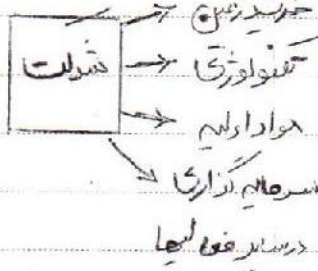 خرید زمین
شرکت
تکنولوژی
مواد اولیه
سرمایه گذاری
در سایر فعالیتها